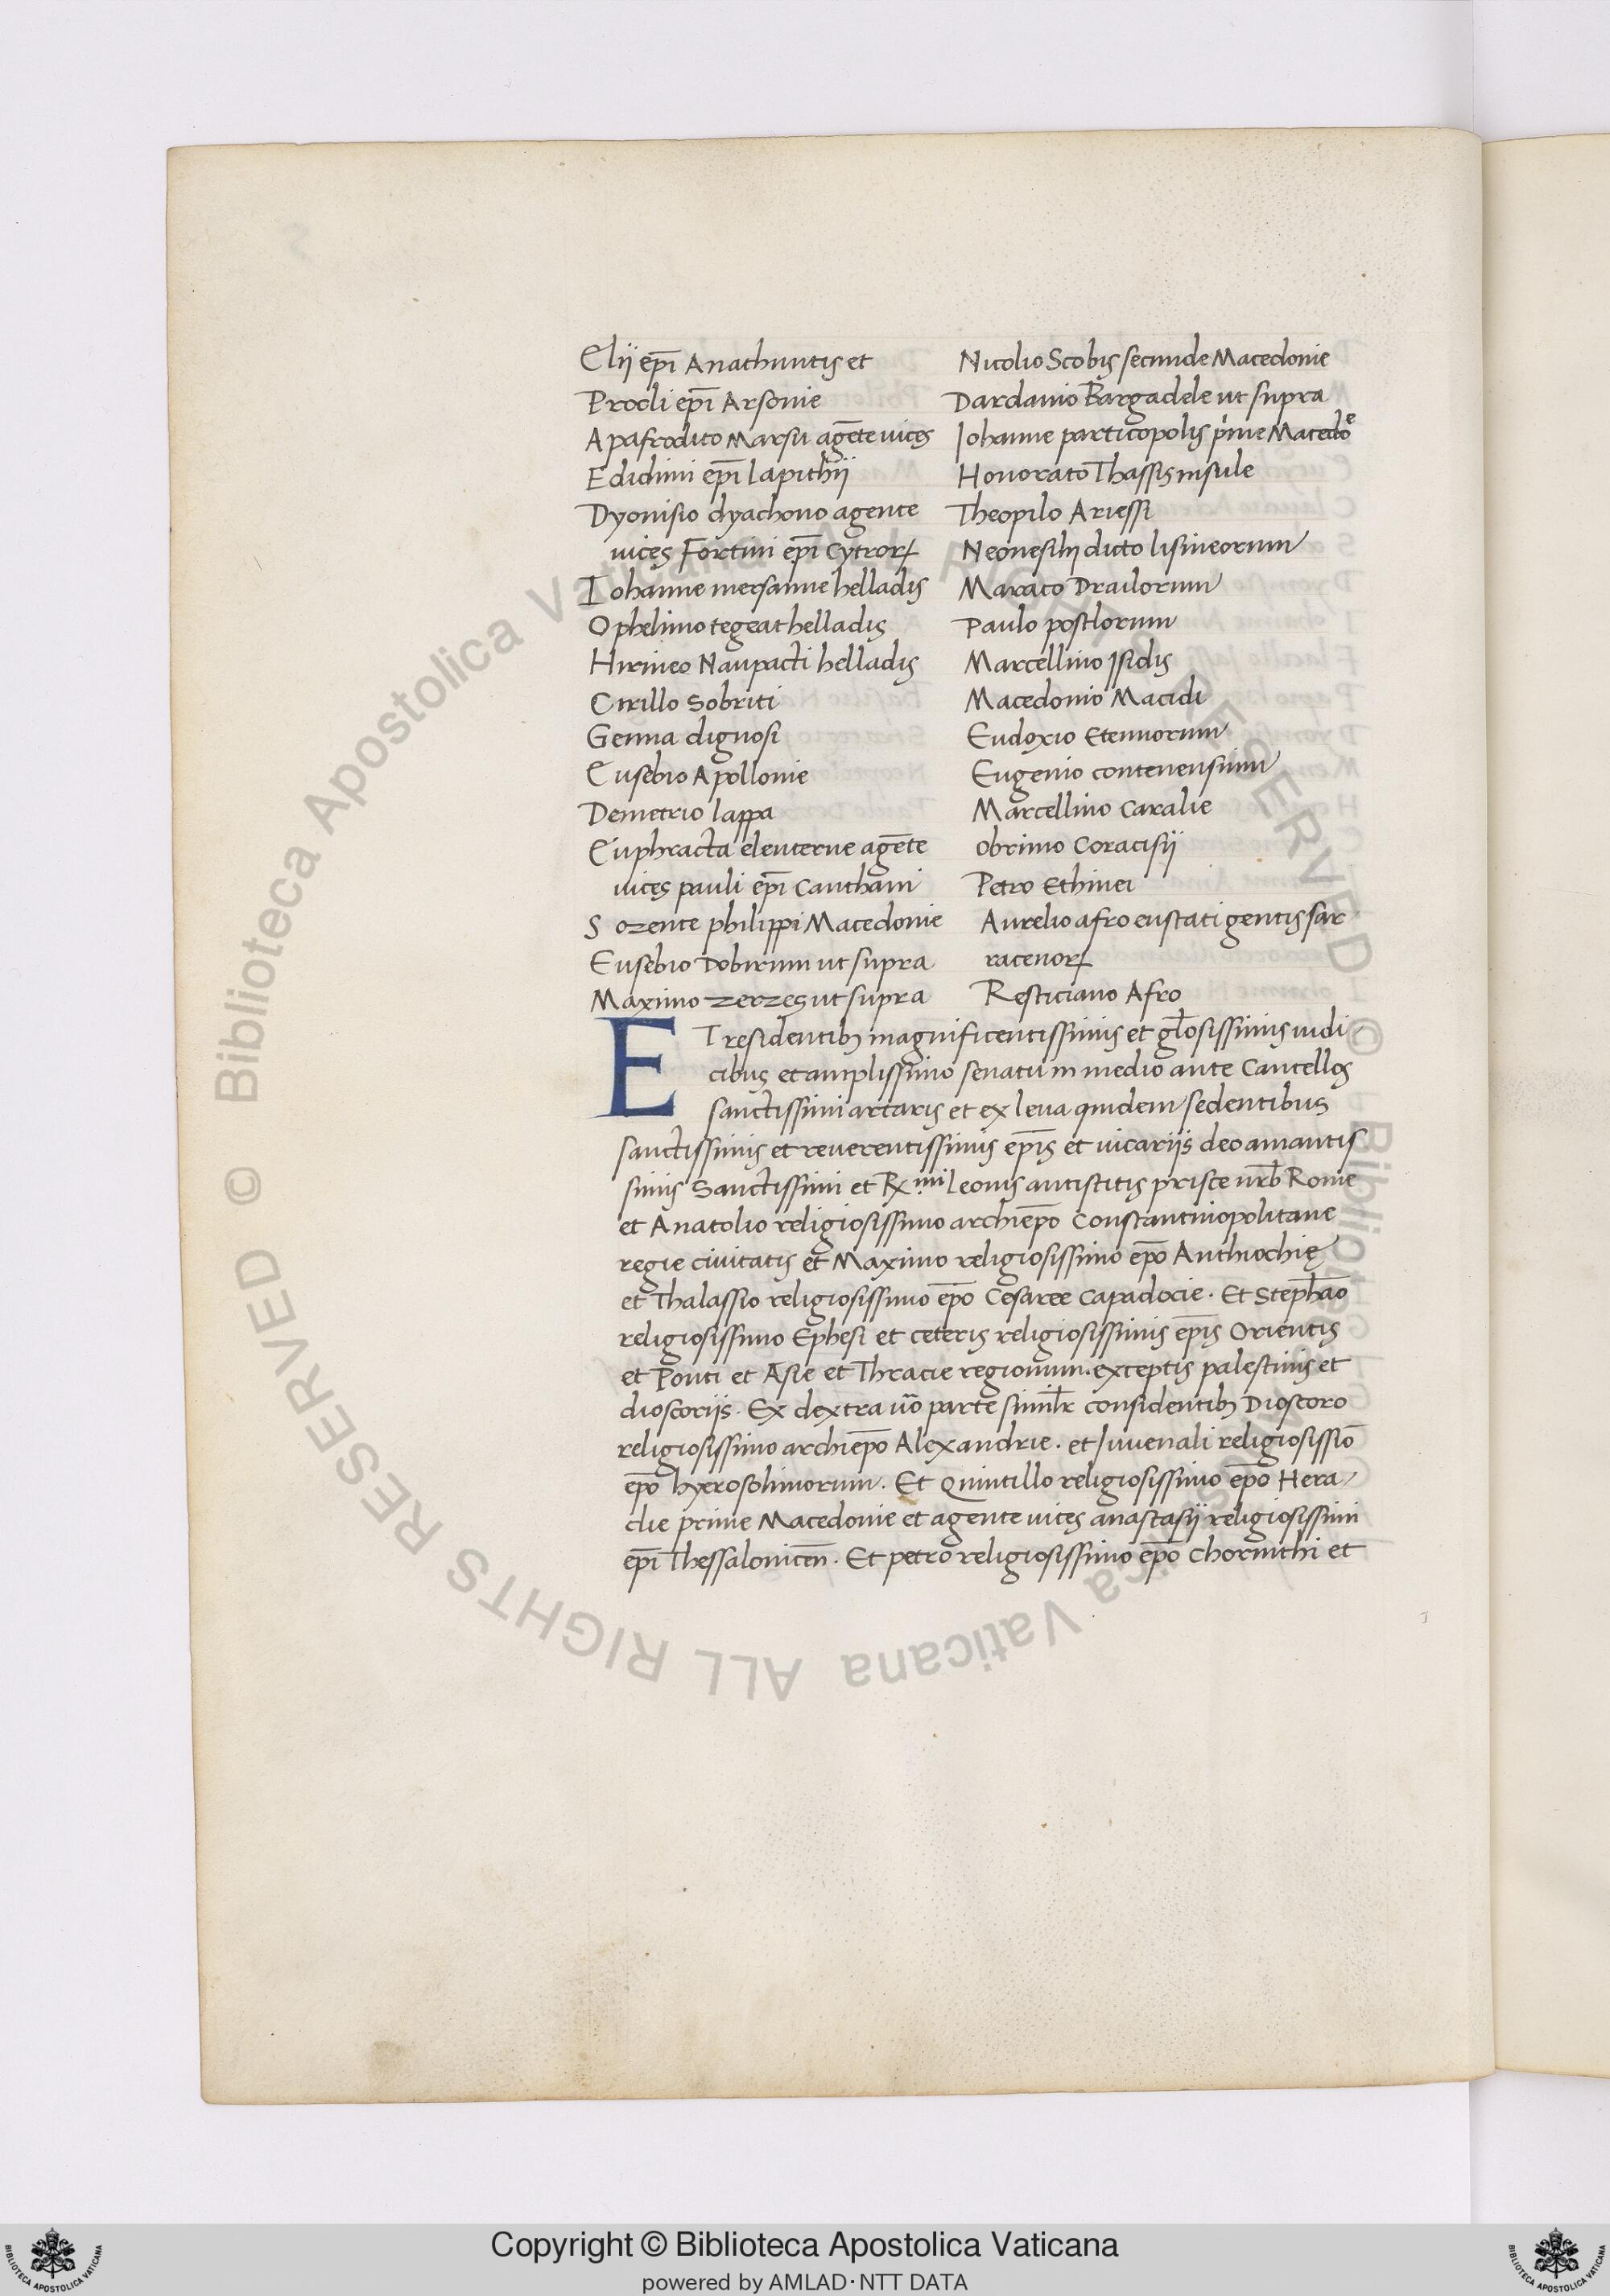 Elij ep̄i Anathuntis et
Procli ep̄i Arsonie
Apafrodito Marsu agēte uices
Edidimi ep̄i lapithij
Dyonisio dyachono agente
uices Fortini ep̄i Cytroꝝ
Iohanne mersanne helladis
Ophelimo tegeat helladis
Hirineo Naupacti helladis
Cirillo Sobriti
Genna dignosi
Eusebio Apollonie
Demetrio lappa
Euphracta eleuterne agēte
uices pauli ep̄i Canthani
Sozente philippi Macedonie
Eusebio Dobirum ut supra
Maximo zerzes ut supra
Nicolio Scobis secunde Macedonie
Dardanio Bargadele ut supra
Johanne particopolis p'me Macedoe
Honorato Thassis insule
Theopilo Ariessi
Neonesilij dicto lisineorum
Maraco Drailorum
Paulo postlorum
Marcellino Jsidis
Macedonio Macidi
Eudoxio Etennorum
Eugenio contenensium
Marcellino Caralie
Obrimo Coracisij
Petro Ethinei
Aurelio afro eustati gentis sar
racenoꝝ
Resticiano Afro
ET residentibꝫ magnificentissimis et gl̄osissimis iudi
cibus et amplissimo senatu in medio ante Cancellos
sanctissimi artaris et ex leua quidem sedentibus
sanctissimis et reuerentissimis ep̄is et uicariis deo amantis
simis Sanctissimi et Rx.mi Leonis antistitis prisce urb̄ Rome
et Anatolio religiosissimo archiep̄o Constantinopolitane
regie ciuitatis et Maximo religiosissimo ep̄o Anthiochię
et Thalassio religiosissimo ep̄o Cesaree Capadocie. Et Steph̄ao
religiosissimo Ephesi et ceteris religiosissimis ep̄is Orientis
et Ponti et Asie et Thracie regionum. exceptis palestinis et
dioscoriis. Ex dextra ūo parte similr̄ considentibꝫ Dioscoro
religiosissimo archiep̄o Alexandrie. et Juuenali religiosissiō
ep̄o hyerosolimorum. Et Quintillo religiosissimo ep̄o Hera
clie prime Macedonie et agente uices anastasij religiosissimi
ep̄i Thessalonicen̄. Et petro religiosissimo ep̄o Chorinthi et
© Biblioteca Apostolica Vaticana ALL RIGHTS RESERVED © Biblioteca Apostolica Vaticana ALL RIGHTS RESERVED
Copyright © Biblioteca Apostolica Vaticana
powered by AMLAD·NTT DATA
BIBLIOTECA APOSTOLICA VATICANA
BIBLIOTECA APOSTOLICA VATICANA